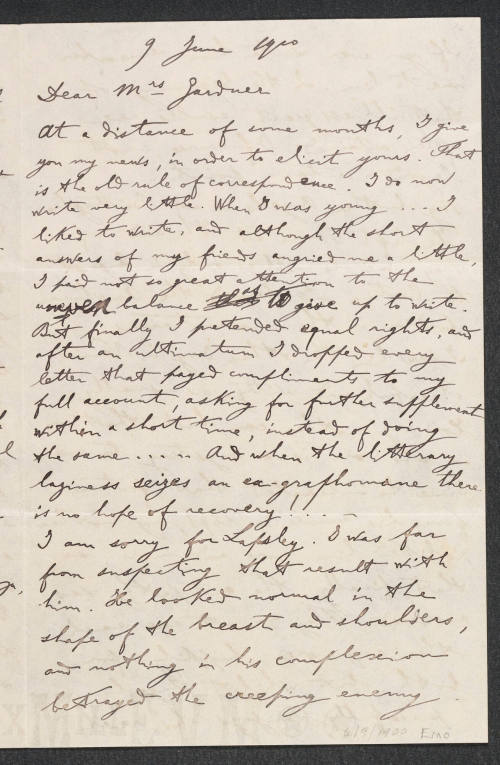 9 June 1900
Dear Mrs Gardner
At a distance of some months, I give
you my news, in order to elicit yours. That
is the old rule of correspondence. I do now
write very little. When I was young ... I
liked to write, and although the short
answers of my friends angried me a little,
I paid not so great attention to the
uneven balance to give up to write.
But finally I pretended equal rights, and
after an ultimatum I dropped every
letter that payed compliments to my
full account, asking for further supplement
within a short time, instead of doing
the same ..... And when the litterary
laziness seizes an ex-graphomane there
is no hope of recovery! ...
I am sorry for Lapsley. I was far
from suspecting that result with
him. He looked normal in the
shape of the breast and shoulders,
and nothing in his complexion
betrayed the creeping enemy.
6/9/1900 Emo